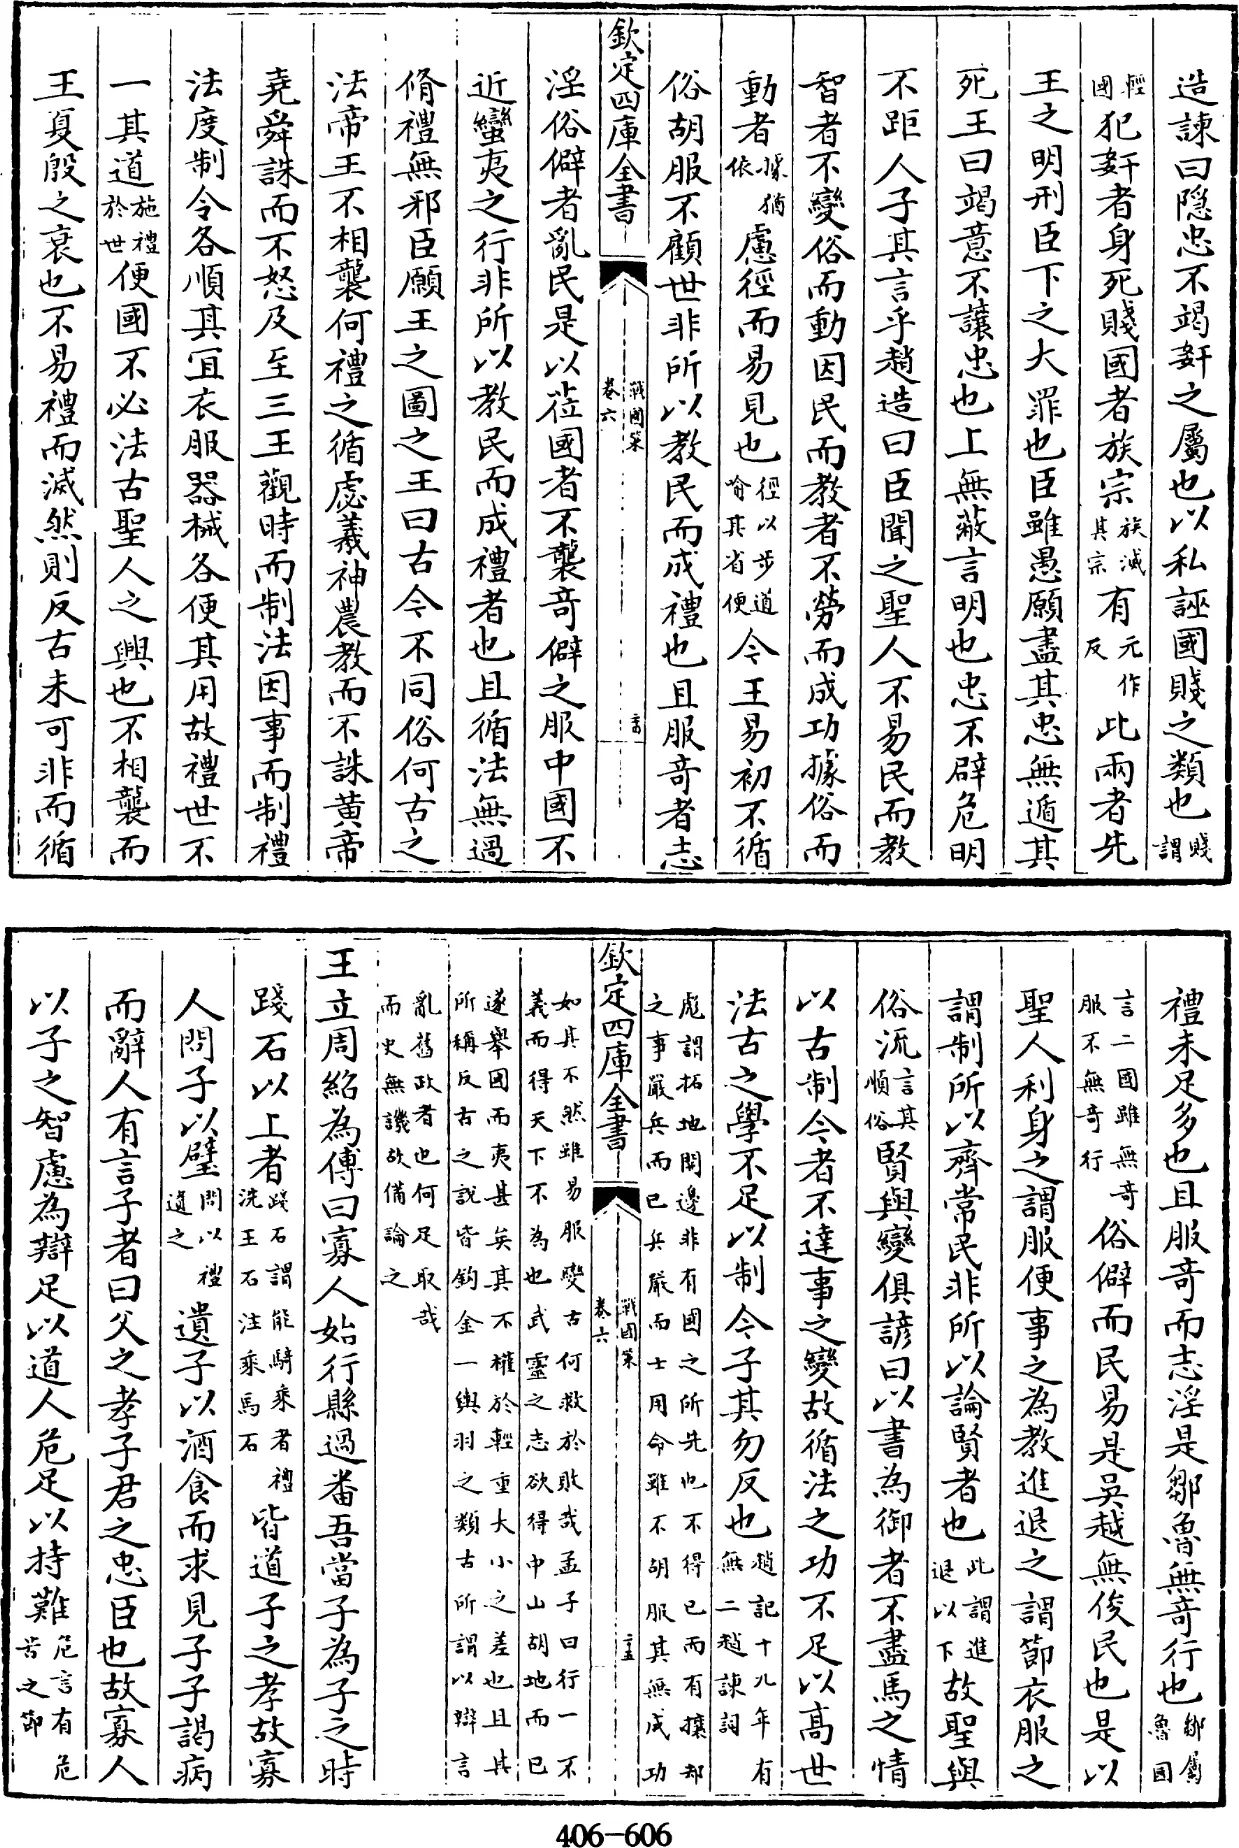 造諫曰隠忠不竭姧之屬也以私誣國賤之類也賤謂
輕國犯姧者身死賤國者族宗族滅其宗有元作反此兩者先
王之明刑臣下之大罪也臣雖愚願盡其忠無遁其
死王曰竭意不讓忠也上無蔽言明也忠不辟危明
不距人子其言乎趙造曰臣聞之聖人不易民而教
智者不變俗而動因民而教者不勞而成功據俗而
動者據猶依慮徑而易見也徑以步道喻其省便今王易初不循
俗胡服不顧世非所以教民而成禮也且服竒者志
欽定四庫全書 戰國策 卷六 十四
淫俗僻者亂民是以莅國者不襲竒僻之服中國不
近蠻夷之行非所以教民而成禮者也且循法無過
脩禮無邪臣願王之圖之王曰古今不同俗何古之
法帝王不相襲何禮之循虙羲神農教而不誅黄帝
堯舜誅而不怒及至三王觀時而制法因事而制禮
法度制令各順其宜衣服器械各便其用故禮世不
一其道施禮於世便國不必法古聖人之興也不相襲而
王夏殷之衰也不易禮而滅然則反古未可非而循
禮未足多也且服竒而志淫是鄒魯無竒行也鄒屬魯國
言二國雖無竒服不無竒行俗僻而民易是吳越無俊民也是以
聖人利身之謂服便事之為教進退之謂節衣服之
謂制所以齊常民非所以論賢者也此謂進退以下故聖與
俗流言其順俗賢與變俱諺曰以書為御者不盡馬之情
以古制今者不達事之變故循法之功不足以髙世
法古之學不足以制今子其勿反也趙記十九年有無二趙諫詞
彪謂拓地闢邊非有國之所先也不得已而有攘却
之事嚴兵而已兵嚴而士用命雖不胡服其無成功
欽定四庫全書 戰國策 卷六 十五
如其不然雖易服變古何救於敗哉孟子曰行一不
義而得天下不為也武靈之志欲得中山胡地而已
遂舉國而夷甚矣其不權於輕重大小之差也且其
所稱反古之說皆鈎金一輿羽之類古所謂以辯言
亂舊政者也何足取哉
而史無譏故備論之
王立周紹為傅曰寡人始行縣過番吾當子為子之時
踐石以上者踐石謂能騎乘者禮洗王石注乘馬石皆道子之孝故寡
人問子以璧問以禮遺之遺子以酒食而求見子子謁病
而辭人有言子者曰父之孝子君之忠臣也故寡人
以子之智慮為辯足以道人危足以持難危言有危苦之節
406-606